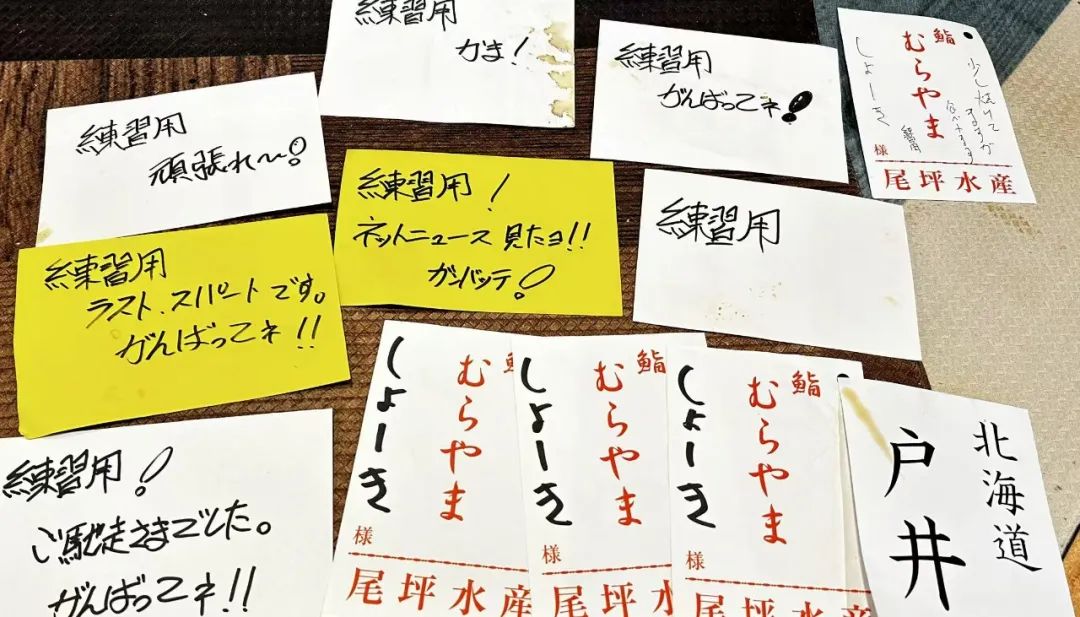 練習用
かま!
練習用
がんばってネ!
鮨
むらやま
しょーき
少し焼けて
ますが
食べれます
練習用
様
尾坪水産
練習用
頑張れ〜!
練習用!
ネットニュース見たヨ!!
ガンバッテ!
練習用
練習用
ラスト、スパートです。
がんばってネ!!
練習用!
ご馳走さまでした。
がんばってネ!!
鮨
むらやま
しょーき
様
尾坪水産
鮨
むらやま
しょーき
様
尾坪水
鮨
むらやま
しょーき
様
尾坪水産
北海道
戸井